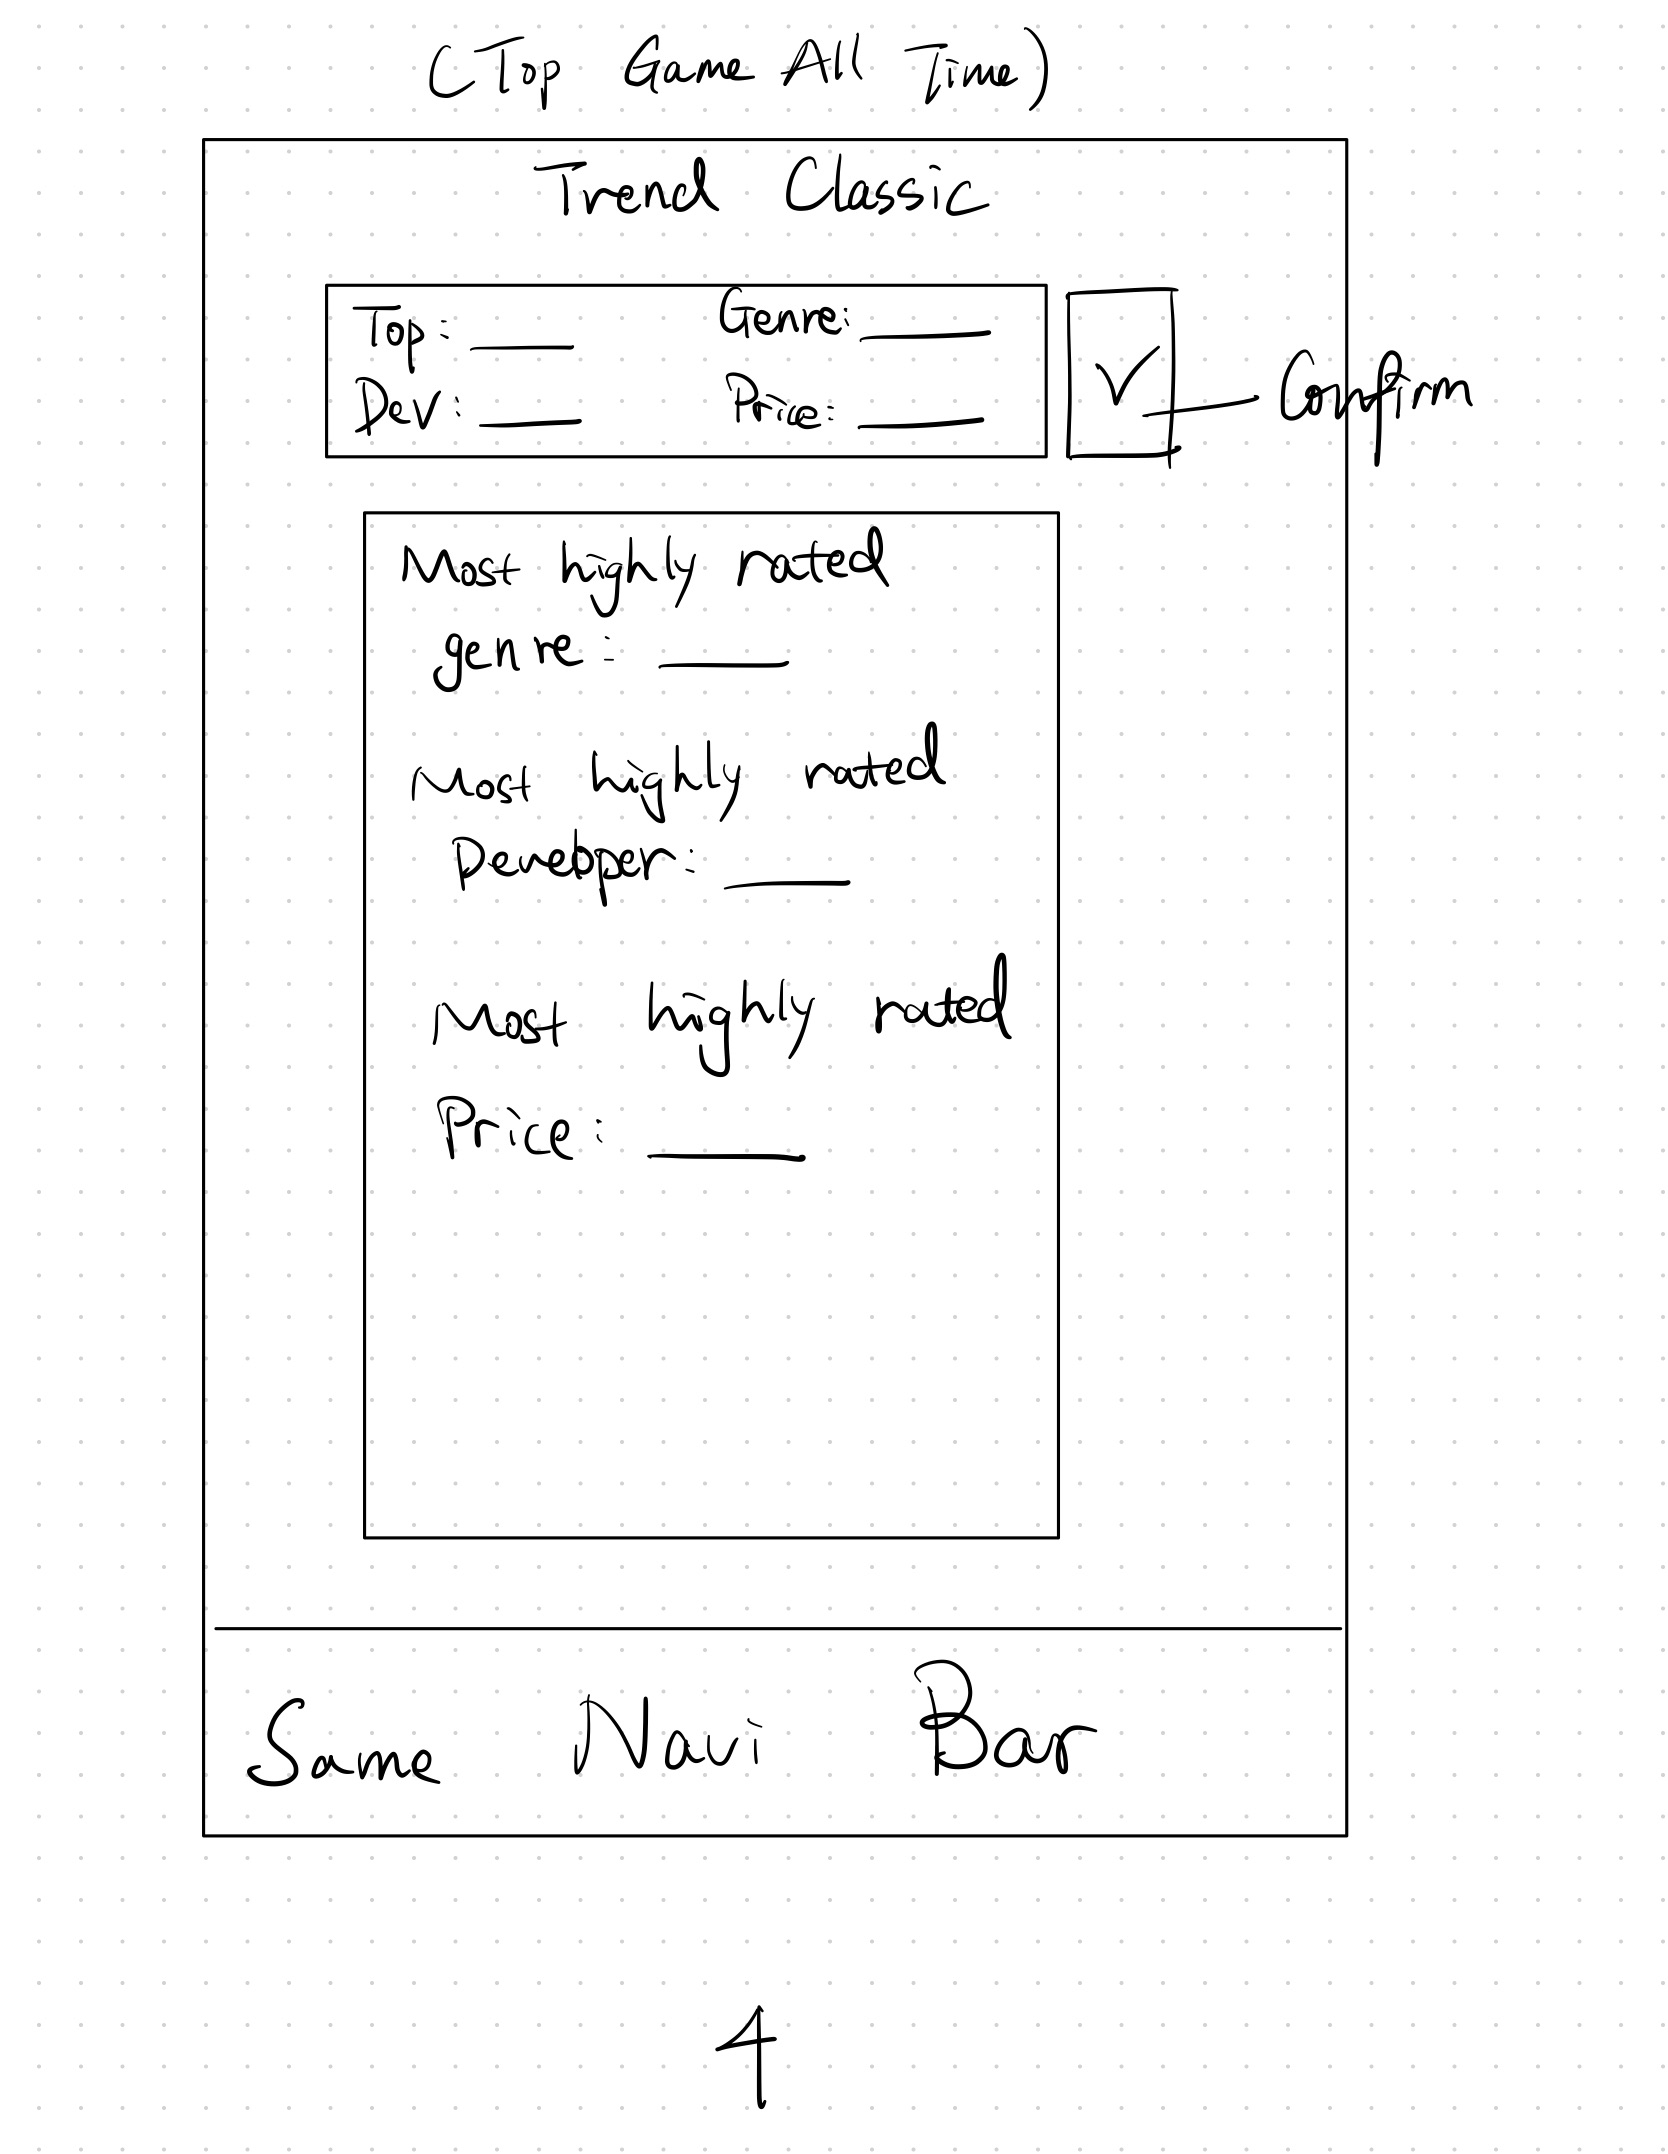 (Top Game All Time)
Trend Classic
Top: ___ Genre: ___
Dev: ___ Price: ___
✓ Confirm
Most highly rated
genre: ___
Most highly rated
Developer: ___
Most highly rated
Price: ___
Same Navi Bar
4